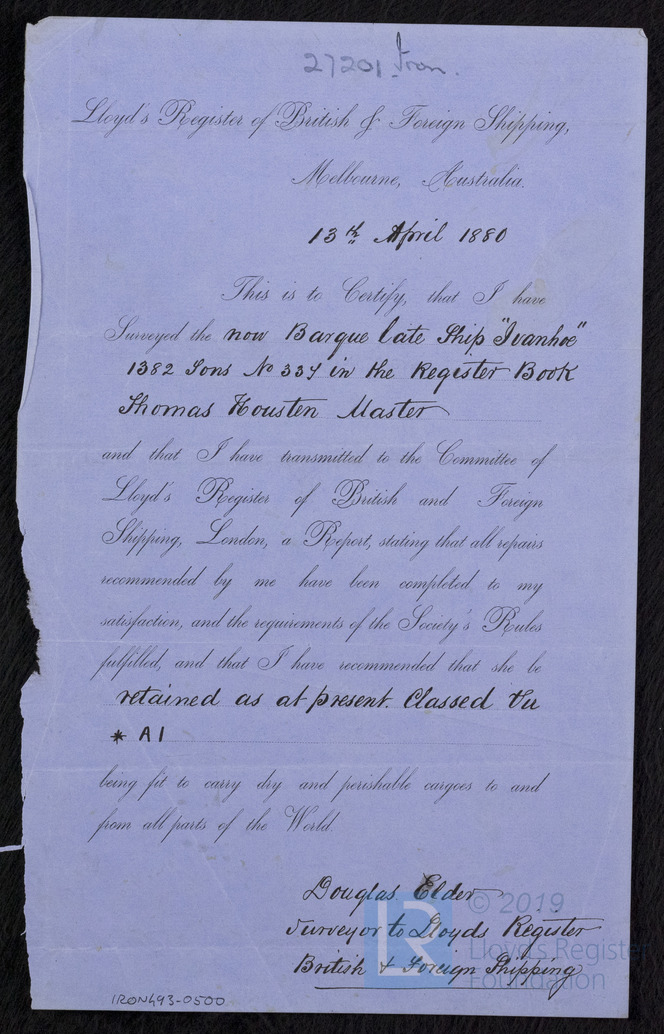 27201 Iron.
Lloyd's Register of British & Foreign Shipping,
Melbourne, Australia.
13th April 1880
This is to Certify, that I have
Surveyed the now Barque late Ship "Ivanhoe"
1382 Tons No 337 in the Register Book
Thomas Housten Master
and that I have transmitted to the Committee of
Lloyd's Register of British and Foreign
Shipping, London, a Report, stating that all repairs
recommended by me have been completed to my
satisfaction, and the requirements of the Society's Rules
fulfilled, and that I have recommended that she be
retained as at present. Classed
* A1
being fit to carry dry and perishable cargoes to and
from all parts of the World.
Douglas Elder
Surveyor to Lloyds Register
British & Foreign Shipping
LR © 2019
Lloyd's Register
Foundation
IRON493-0500